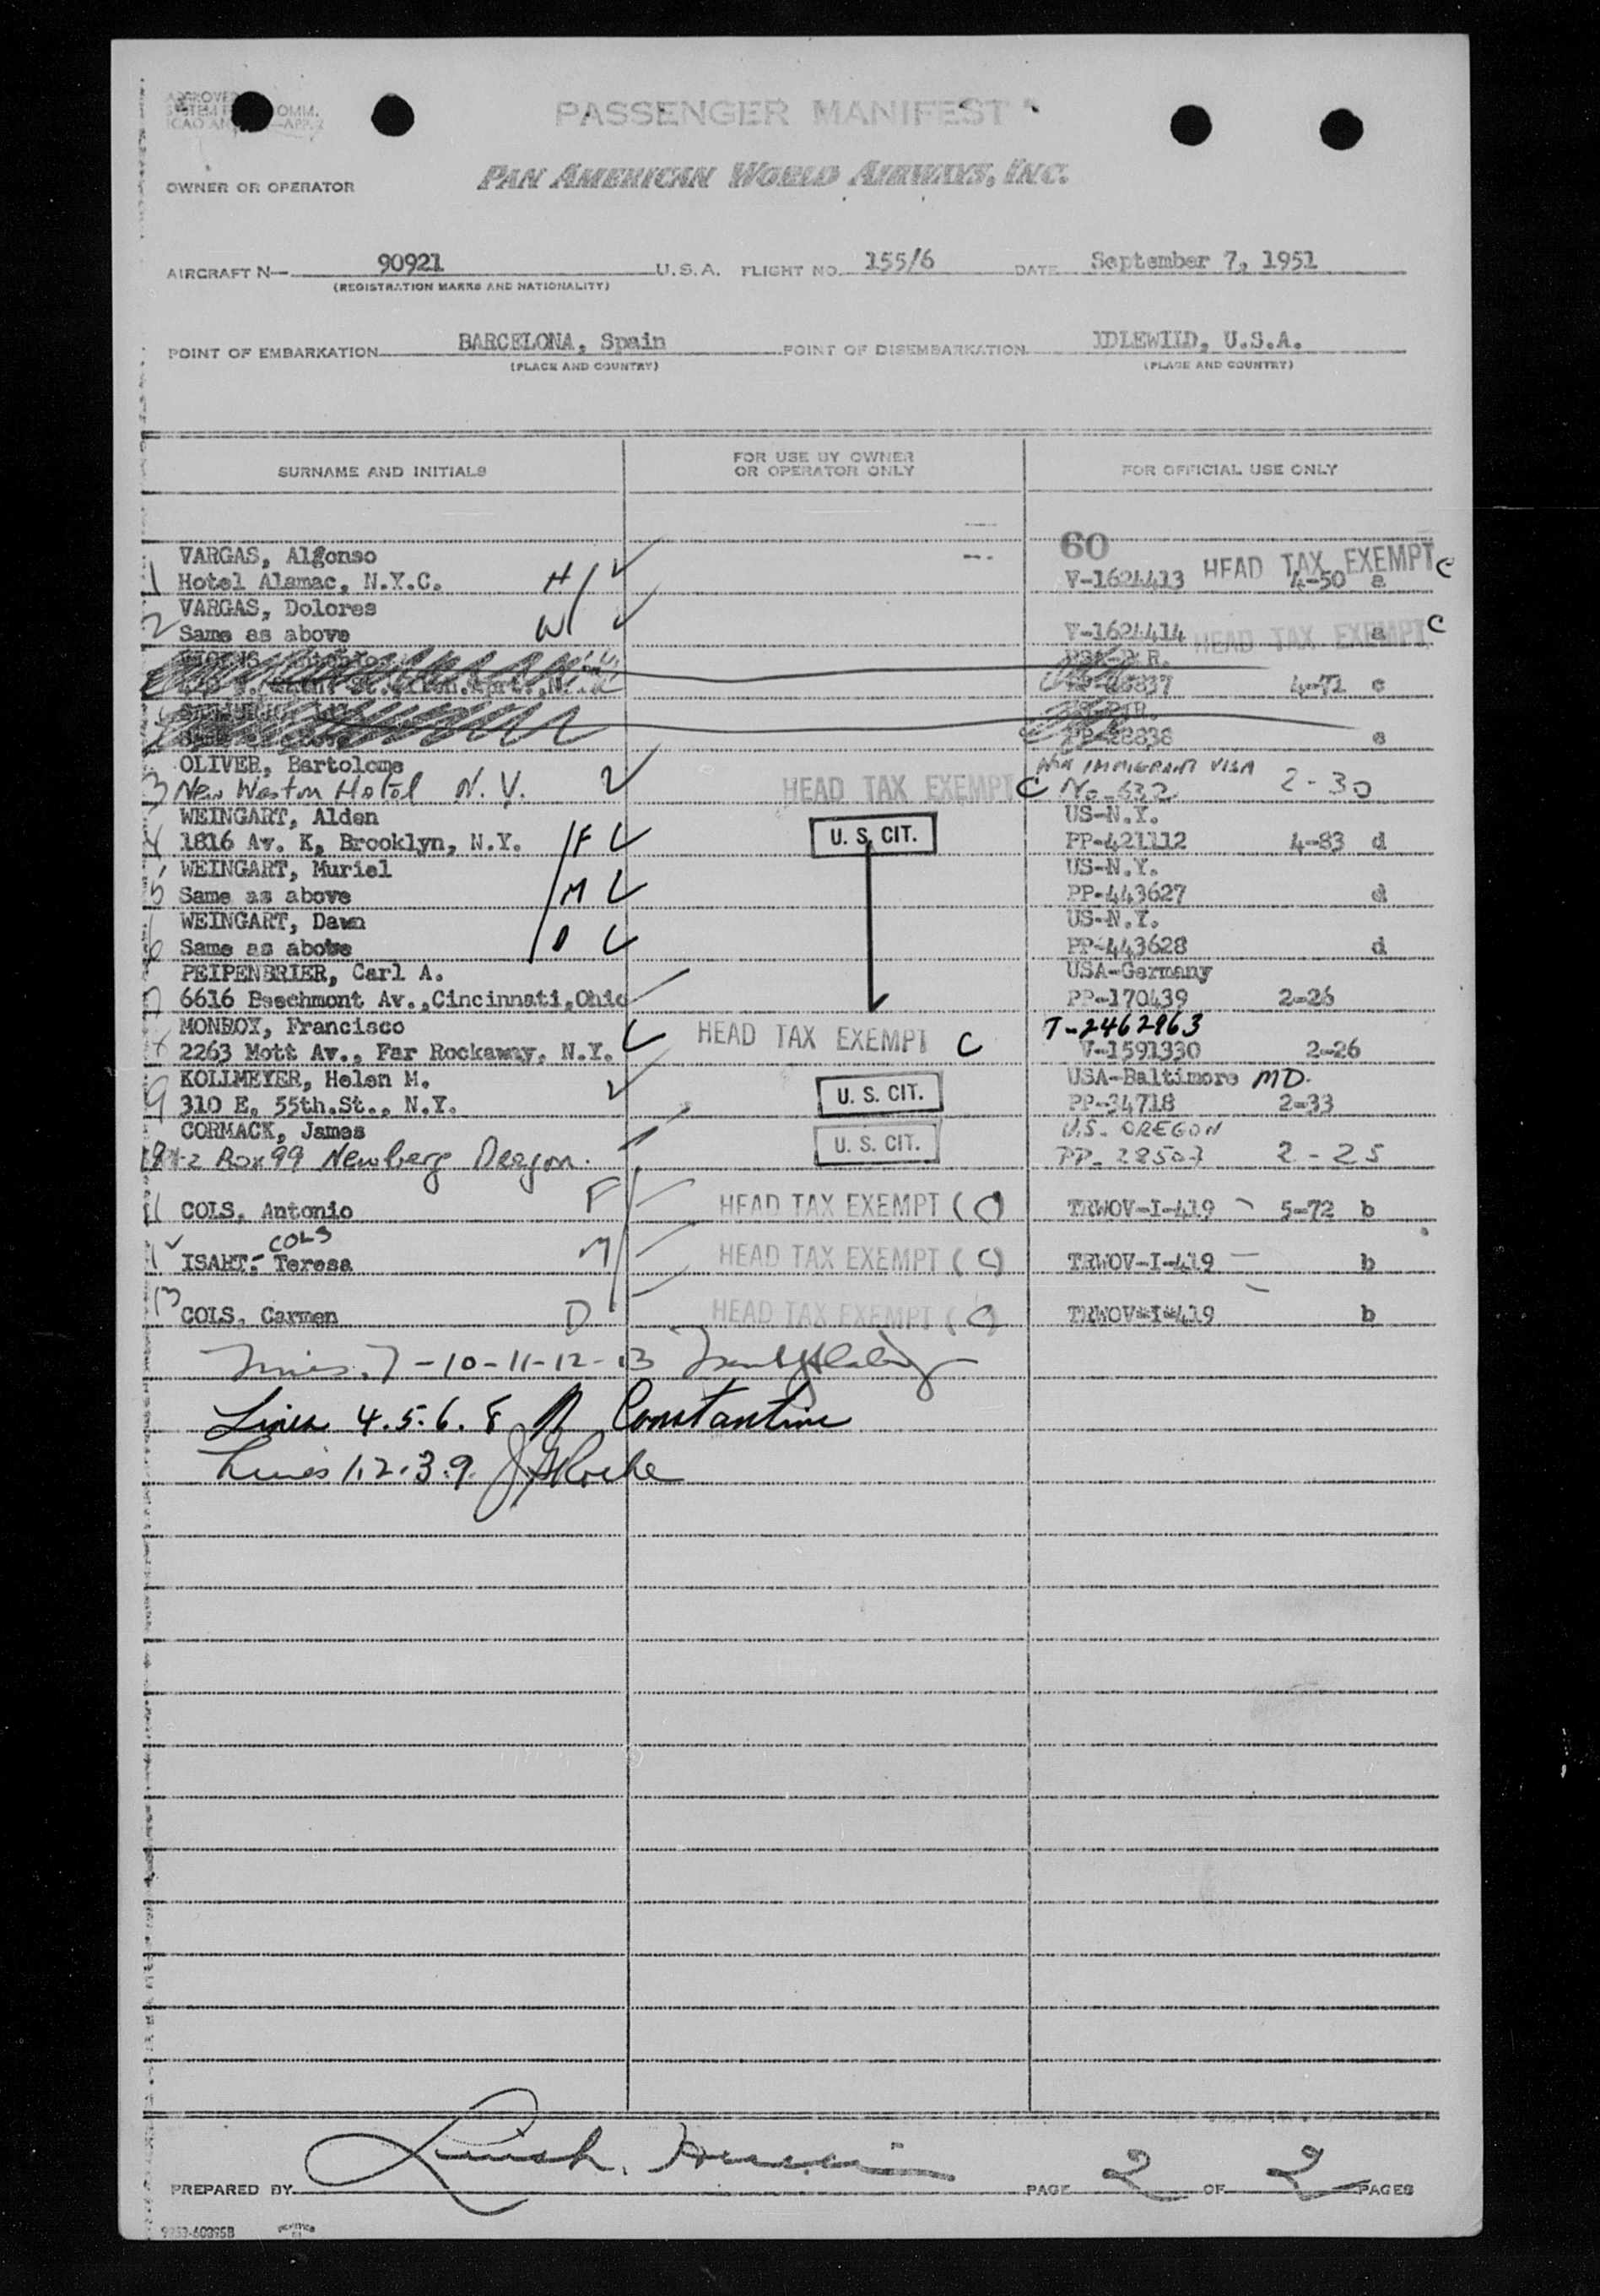 PASSENGER MANIFEST
OWNER OR OPERATOR PAN AMERICAN WORLD AIRWAYS, INC.
AIRCRAFT N— 90921 U.S.A. FLIGHT NO. 155/6 DATE September 7, 1951
(REGISTRATION MARKS AND NATIONALITY)
POINT OF EMBARKATION BARCELONA, Spain POINT OF DISEMBARKATION IDLEWIID, U.S.A.
(PLACE AND COUNTRY) (PLACE AND COUNTRY)
SURNAME AND INITIALS FOR USE BY OWNER OR OPERATOR ONLY FOR OFFICIAL USE ONLY
60
VARGAS, Algonso HEAD TAX EXEMPT C
1 Hotel Alamac, N.Y.C. H V-1624413 4-50 a
VARGAS, Dolores
2 Same as above W V-1624414 HEAD TAX EXEMPT a C
4-72 e
PP-28838 e
OLIVER, Bartolome IMMIGRANT VISA
3 New Weston Hotel N.Y. HEAD TAX EXEMPT C No-632 2-30
WEINGART, Alden US-N.Y.
4 1816 Av. K, Brooklyn, N.Y. F U. S. CIT. PP-421112 4-83 d
WEINGART, Muriel US-N.Y.
5 Same as above M PP-443627 d
WEINGART, Dawn US-N.Y.
6 Same as above D PP-443628 d
PEIPENBRIER, Carl A. USA-Germany
7 6616 Beechmont Av.,Cincinnati,Ohio PP-170439 2-26
MONROY, Francisco HEAD TAX EXEMPT C T-2462863
8 2263 Mott Av., Far Rockaway, N.Y. V-1591330 2-26
KOLLMEYER, Helen M. USA-Baltimore MD.
9 310 E. 55th.St., N.Y. U. S. CIT. PP-34718 2-33
CORMACK, James U. S. CIT. U.S. OREGON
Box 99 Newberg Oregon. 2-25
11 COLS, Antonio F HEAD TAX EXEMPT (C) TRWOV-I-419 5-72 b
COLS
ISART- Teresa M HEAD TAX EXEMPT (C) TRWOV-I-419 b
13 COLS, Carmen D HEAD TAX EXEMPT (C) TRWOV-I-419 b
Lines 7-10-11-12-13
Lines 4.5.6.8 Constantine
Lines 1.2.3.9. Roche
PREPARED BY PAGE 2 OF 2 PAGES